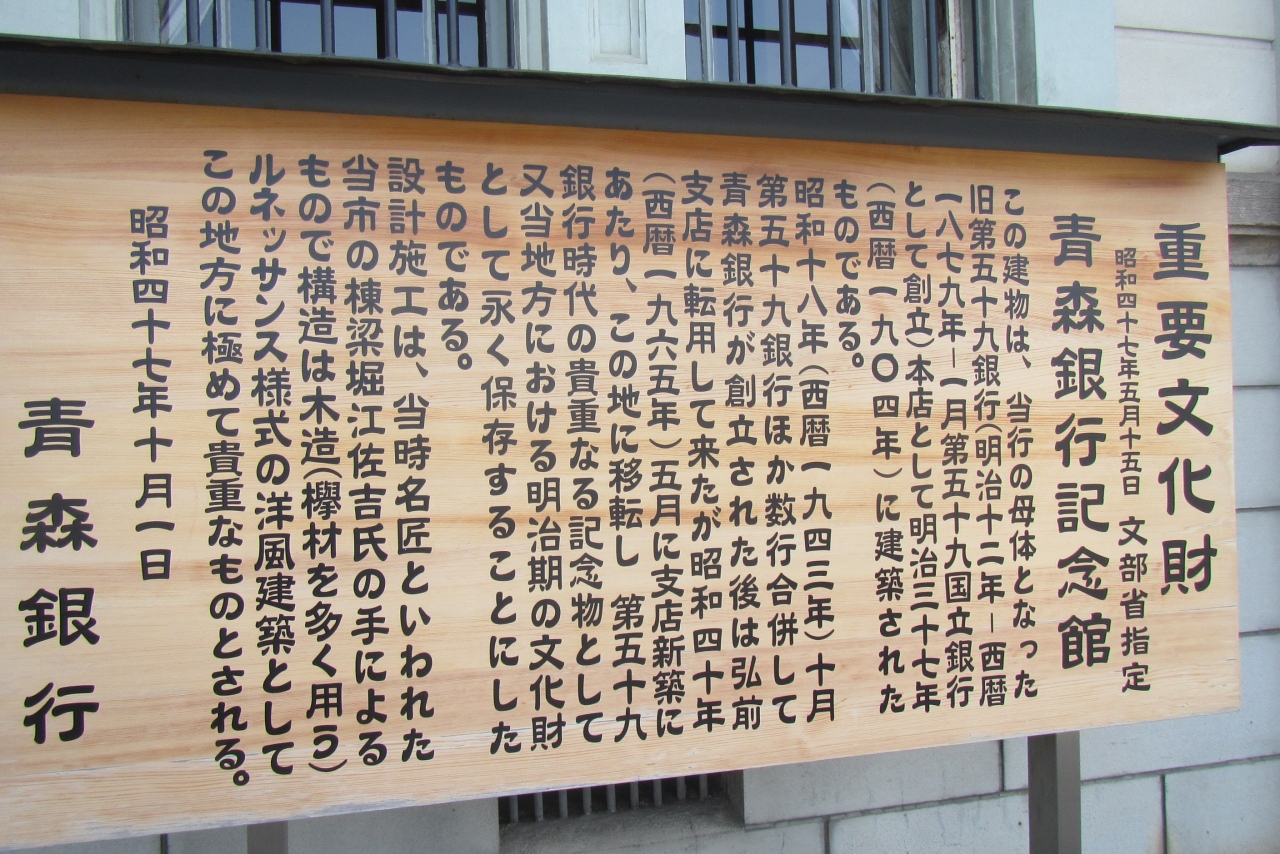 重要文化財
昭和四十七年五月十五日 文部省指定
青森銀行記念館
この建物は、当行の母体となった
旧第五十九銀行(明治十二年―西暦
一八七九年―一月第五十九国立銀行
として創立)本店として明治三十七年
(西暦一九〇四年)に建築された
ものである。
昭和十八年(西暦一九四三年)十月
第五十九銀行ほか数行合併して
青森銀行が創立された後は弘前
支店に転用して来たが昭和四十年
(西暦一九六五年)五月に支店新築に
あたり、この地に移転し 第五十九
銀行時代の貴重なる記念物として
又当地方における明治期の文化財
として永く保存することにした
ものである。
設計施工は、当時名匠といわれた
当市の棟梁堀江佐吉氏の手による
もので構造は木造(欅材を多く用う)
ルネッサンス様式の洋風建築として
この地方に極めて貴重なものとされる。
昭和四十七年十月一日
青森銀行